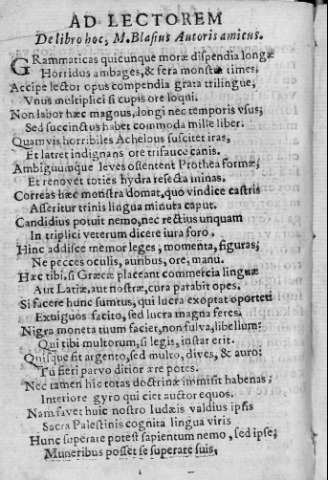 AD LECTOREM
De libro hoc, M. Blasius Autoris amicus.
GRammaticas quicunque moræ dispendia longæ
Horridus ambages, & fera monstra times,
Accipe lector opus compendia grata trilingue,
Vnus multiplici si cupis ore loqui.
Non labor hæc magnus, longi nec temporis vsus;
Sed succinctus habet commoda mille liber.
Quamvis horribiles Achelous suscitet iras,
Et latret indignans ore trifauce canis.
Ambiguumque leves ostentent Prothea formæ;
Et renovet toties hydra resecta minas.
Correas hæc monstra domat, quo vindice castris
Asseritur trinis lingua minuta caput.
Candidius potuit nemo, nec rectius unquam
In triplici veterum dicere iura foro.
Hinc addisce memor leges, momenta, figuras;
Ne pecces oculis, auribus, ore, manu.
Hæc tibi, si Græcæ placeant commercia linguæ
Aut Latiæ, aut nostræ, cura parabit opes.
Si facere hunc sumtus, qui lucra exoptat oportet
Exiguos facito, sed lucra magna feres.
Nigra moneta tuum faciet, non fulva, libellum:
Qui tibi multorum, si legis, instar erit.
Quisque sit argento, sed multo, dives, & auro:
Tu fieri parvo ditior ære potes.
Nec tamen hic totas doctrinæ immisit habenas;
Interiore gyro qui ciet auctor equos.
Nam favet huic nostro Iudæis valdius ipsis
Sacra Palestinis cognita lingua viris
Hunc superare potest sapientum nemo, sed ipse;
Muneribus posset se superare suis,